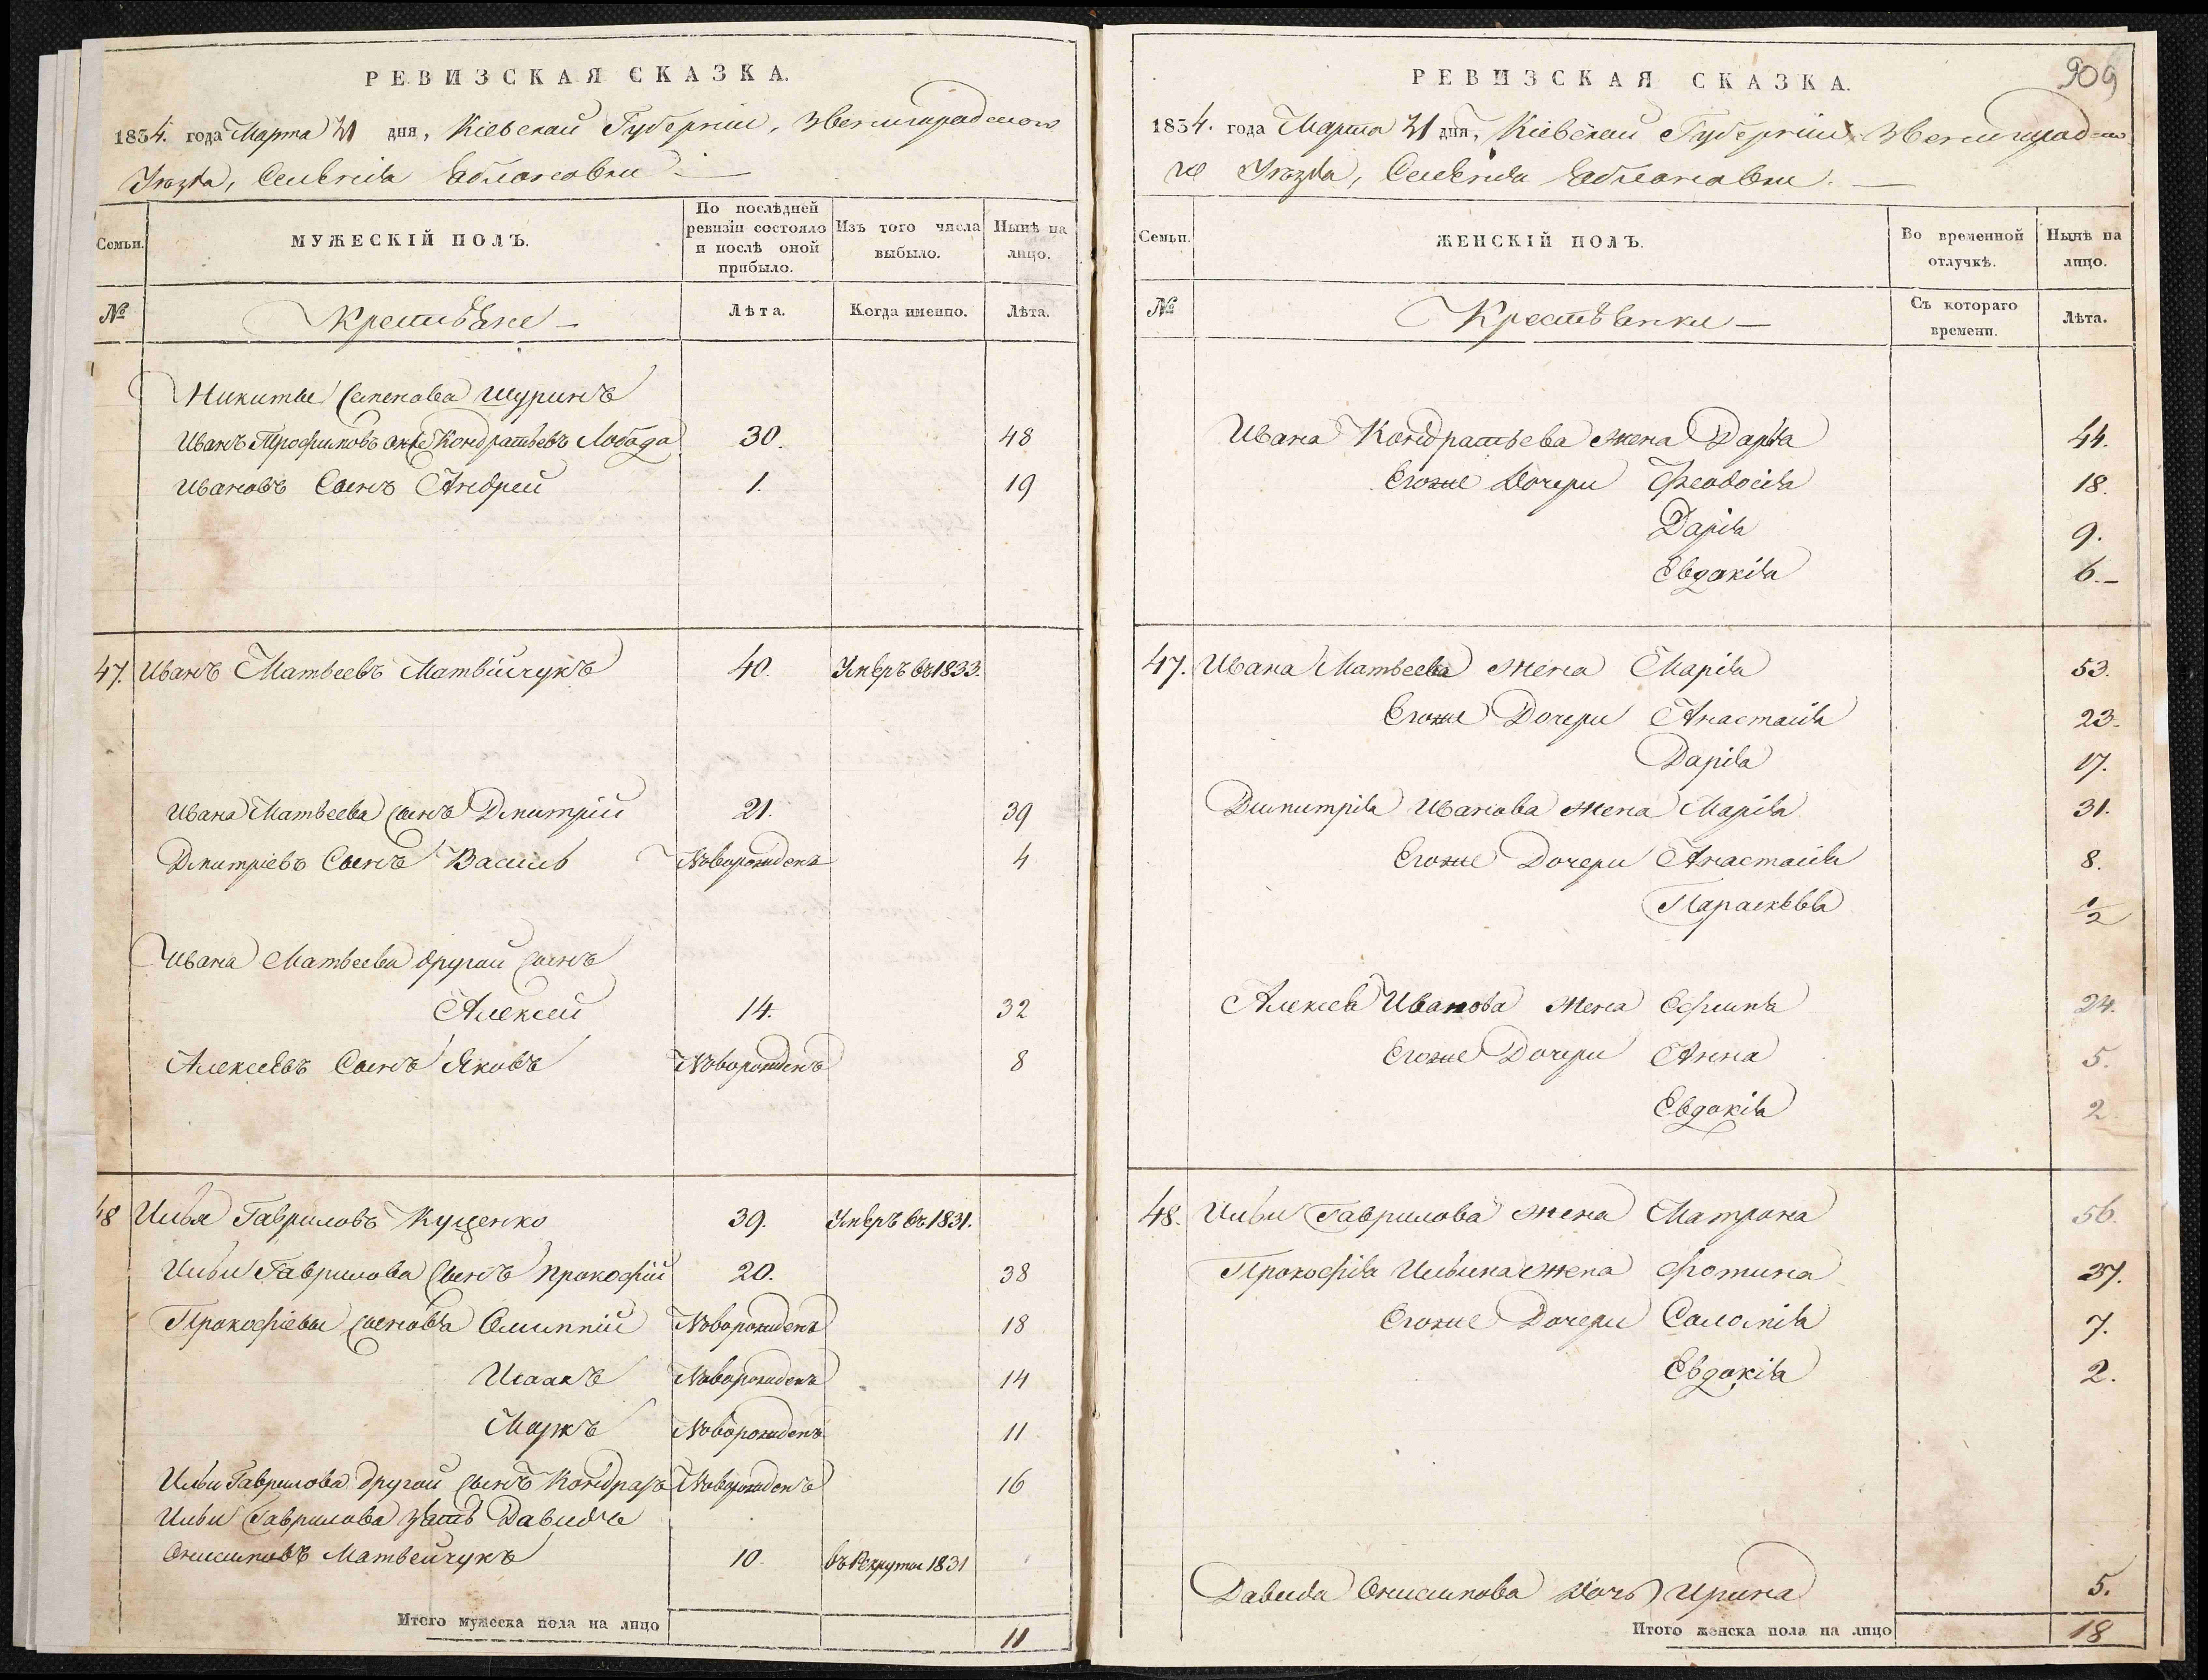 РЕВИЗСКАЯ СКАЗКА.
1834. года Марта 31 дня, Кіевской Губерніи, Звенигородского
Уѣзда, Селенія
Семьи.
МУЖЕСКІЙ ПОЛЪ.
По послѣдней ревизіи состояло и послѣ оной прибыло.
Изъ того числа выбыло.
Нынѣ на лицо.
№
Крестьяне —
Лѣта.
Когда именно.
Лѣта.
Никиты Семенова Шуринъ
Иванъ Трофимовъ онже Кондратьевъ Лобода 30. 48
Ивановъ Сынъ Андрей 1. 19
47. Иванъ Матвеевъ Матвійчукъ 40. Умеръ въ 1833.
Ивана Матвеева Сынъ Дмитрій 21. 39
Дмитріевъ Сынъ Василь Новорожденъ 4
Ивана Матвеева другой Сынъ
Алексей 14. 32
Алексеевъ Сынъ Яковъ Новорожденъ 8
48 Илья Гавриловъ Куценко 39. Умеръ въ 1831.
Ильи Гаврилова Сынъ Прокофій 20. 38
Прокофіевы Сыновья Олимпій Новорожденъ 18
Исаакъ Новорожденъ 14
Маркъ Новорожденъ 11
Ильи Гаврилова другой Сынъ Кондратъ Новорожденъ 16
Ильи Гаврилова Зять Давидъ
Онисимовъ Матвейчукъ 10. въ Рекруты 1831
Итого мужеска пола на лицо 11
909
РЕВИЗСКАЯ СКАЗКА.
1834. года Марта 31 дня, Кіевской Губерніи Звенигородско
го Уѣзда, Селенія
Семьи.
ЖЕНСКІЙ ПОЛЪ.
Во временной отлучкѣ.
Нынѣ на лицо.
№
Крестьянки —
Съ котораго времени.
Лѣта.
Ивана Кондратьева жена Дарья 44.
Егоже Дочери Феодосія 18.
Дарія 9.
Евдокія 6.
47. Ивана Матвеева жена Марія 53.
Егоже Дочери Анастасія 23.
Дарія 17.
Димитрія Иванова жена Марія 31.
Егоже Дочери Анастасія 8.
Параскевья 1/2
Алексея Иванова жена Ефимія 24.
Егоже Дочери Анна 5.
Евдокія 2
48. Ильи Гаврилова жена Матрона 56.
Прокофія Ильина жена Фотина 37.
Егоже Дочери Саломія 7.
Евдокія 2.
Давида Онисимова Дочь Ирина 5.
Итого женска пола на лицо 18